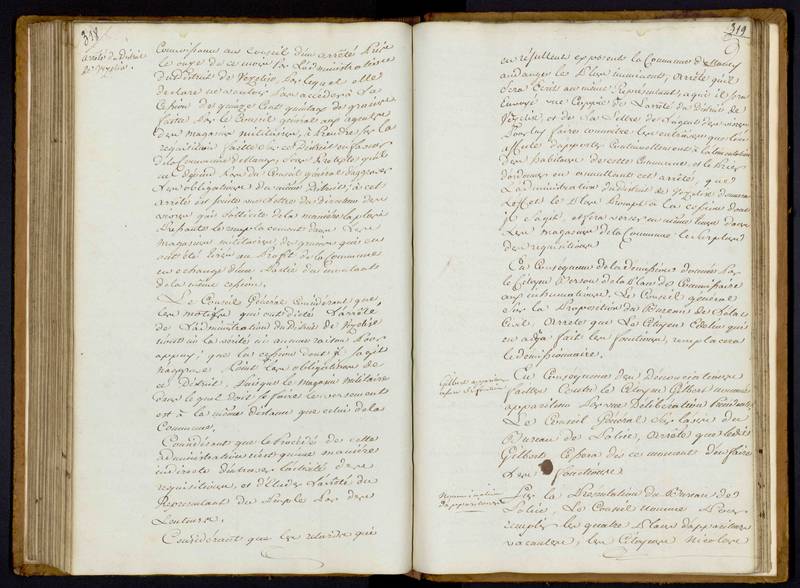 318
arrêté du District
de Vezelise.
Communiqué au Conseil d'un arrêté pris
le onze de ce mois par l'administration
du District de Vezelise, par lequel elle
declare ne vouloir pas acceder à la
Cession de quinze Cent quintaux de graines
faite par le Conseil général aux agens
des magasins militaires, à prendre sur la
requisition faitte sur ce District en faveur
de la Commune de Nancy, sous prétexte qu'il
ne dépend pas du Conseil général d'aggraver
les obligations du même District; à cet
arrêté est jointe une lettre du directeur des
vivres qui sollicite de la manière la plus
pressante le remplacement dans les
magasins militaires, des graines qui en
ont été tirés au profit de la Commune
en échange d'une partie du montant
de la même cession.
Le Conseil Général considérant que
les motifs qui ont dicté l'arrêté
de l'administration du District de Vezelise
n'ont ni la vérité ni aucune raison pour
appuy; que la cession dont il s'agit
n'aggrave point les obligations de
ce District, puisque le magasin militaire
dans lequel doit se faire le versement
est à la même distance que celui de la
Commune.
Considérant que le procédé de cette
administration n'est qu'une manière
indirecte d'entraver l'activité des
requisitions, et d'éluder l'arrêté du
Représentant du Peuple par des
Lenteurs.
Considérant que les retards qui
319
en résultent exposent la Commune de Nancy
au danger le plus imminent, arrête qu'il
sera écrit au même Représentant, a qui il sera
Envoyé une Copie de l'arrêté du District de
Vezelise, et de la Lettre de l'agent des vivres
pour luy faire connoître les entraves que l'on
affecte d'apporter continuellement à l'alimentation
des habitans de cette Commune, et le prier
d'ordonner en annullant cet arrêté, que
l'administration du District de Vezelise donnera
l'effet le plus prompt à la cession dont
il s'agit, et fera verser en même tems dans
les magasins de la Commune le surplus
des requisitions
En Conséquence de la démission donnée par
le Citoyen Berson de la place de Commissaire
aux inhumations, Le Conseil général
sur la Proposition du Bureau de l'état
Civil, arrête que le Citoyen qui
en a déja fait les fonctions, remplacera
le démissionnaire.
Gilbert appariteur
cesse ses fonctions
En Conséquence des dénonciations
faittes contre le Citoyen Gilbert nommé
appariteur par une Délibération
Le Conseil Général sur l'avis du
Bureau de Police, arrête que ledit
Gilbert cessera dès ce moment d'en faire
les fonctions
Nomination
d'appariteurs
Sur la Présentation du Bureau de
Police, Le Conseil nomme pour
remplir les quatre places d'appariteurs
vacantes, les Citoyens Nicolas